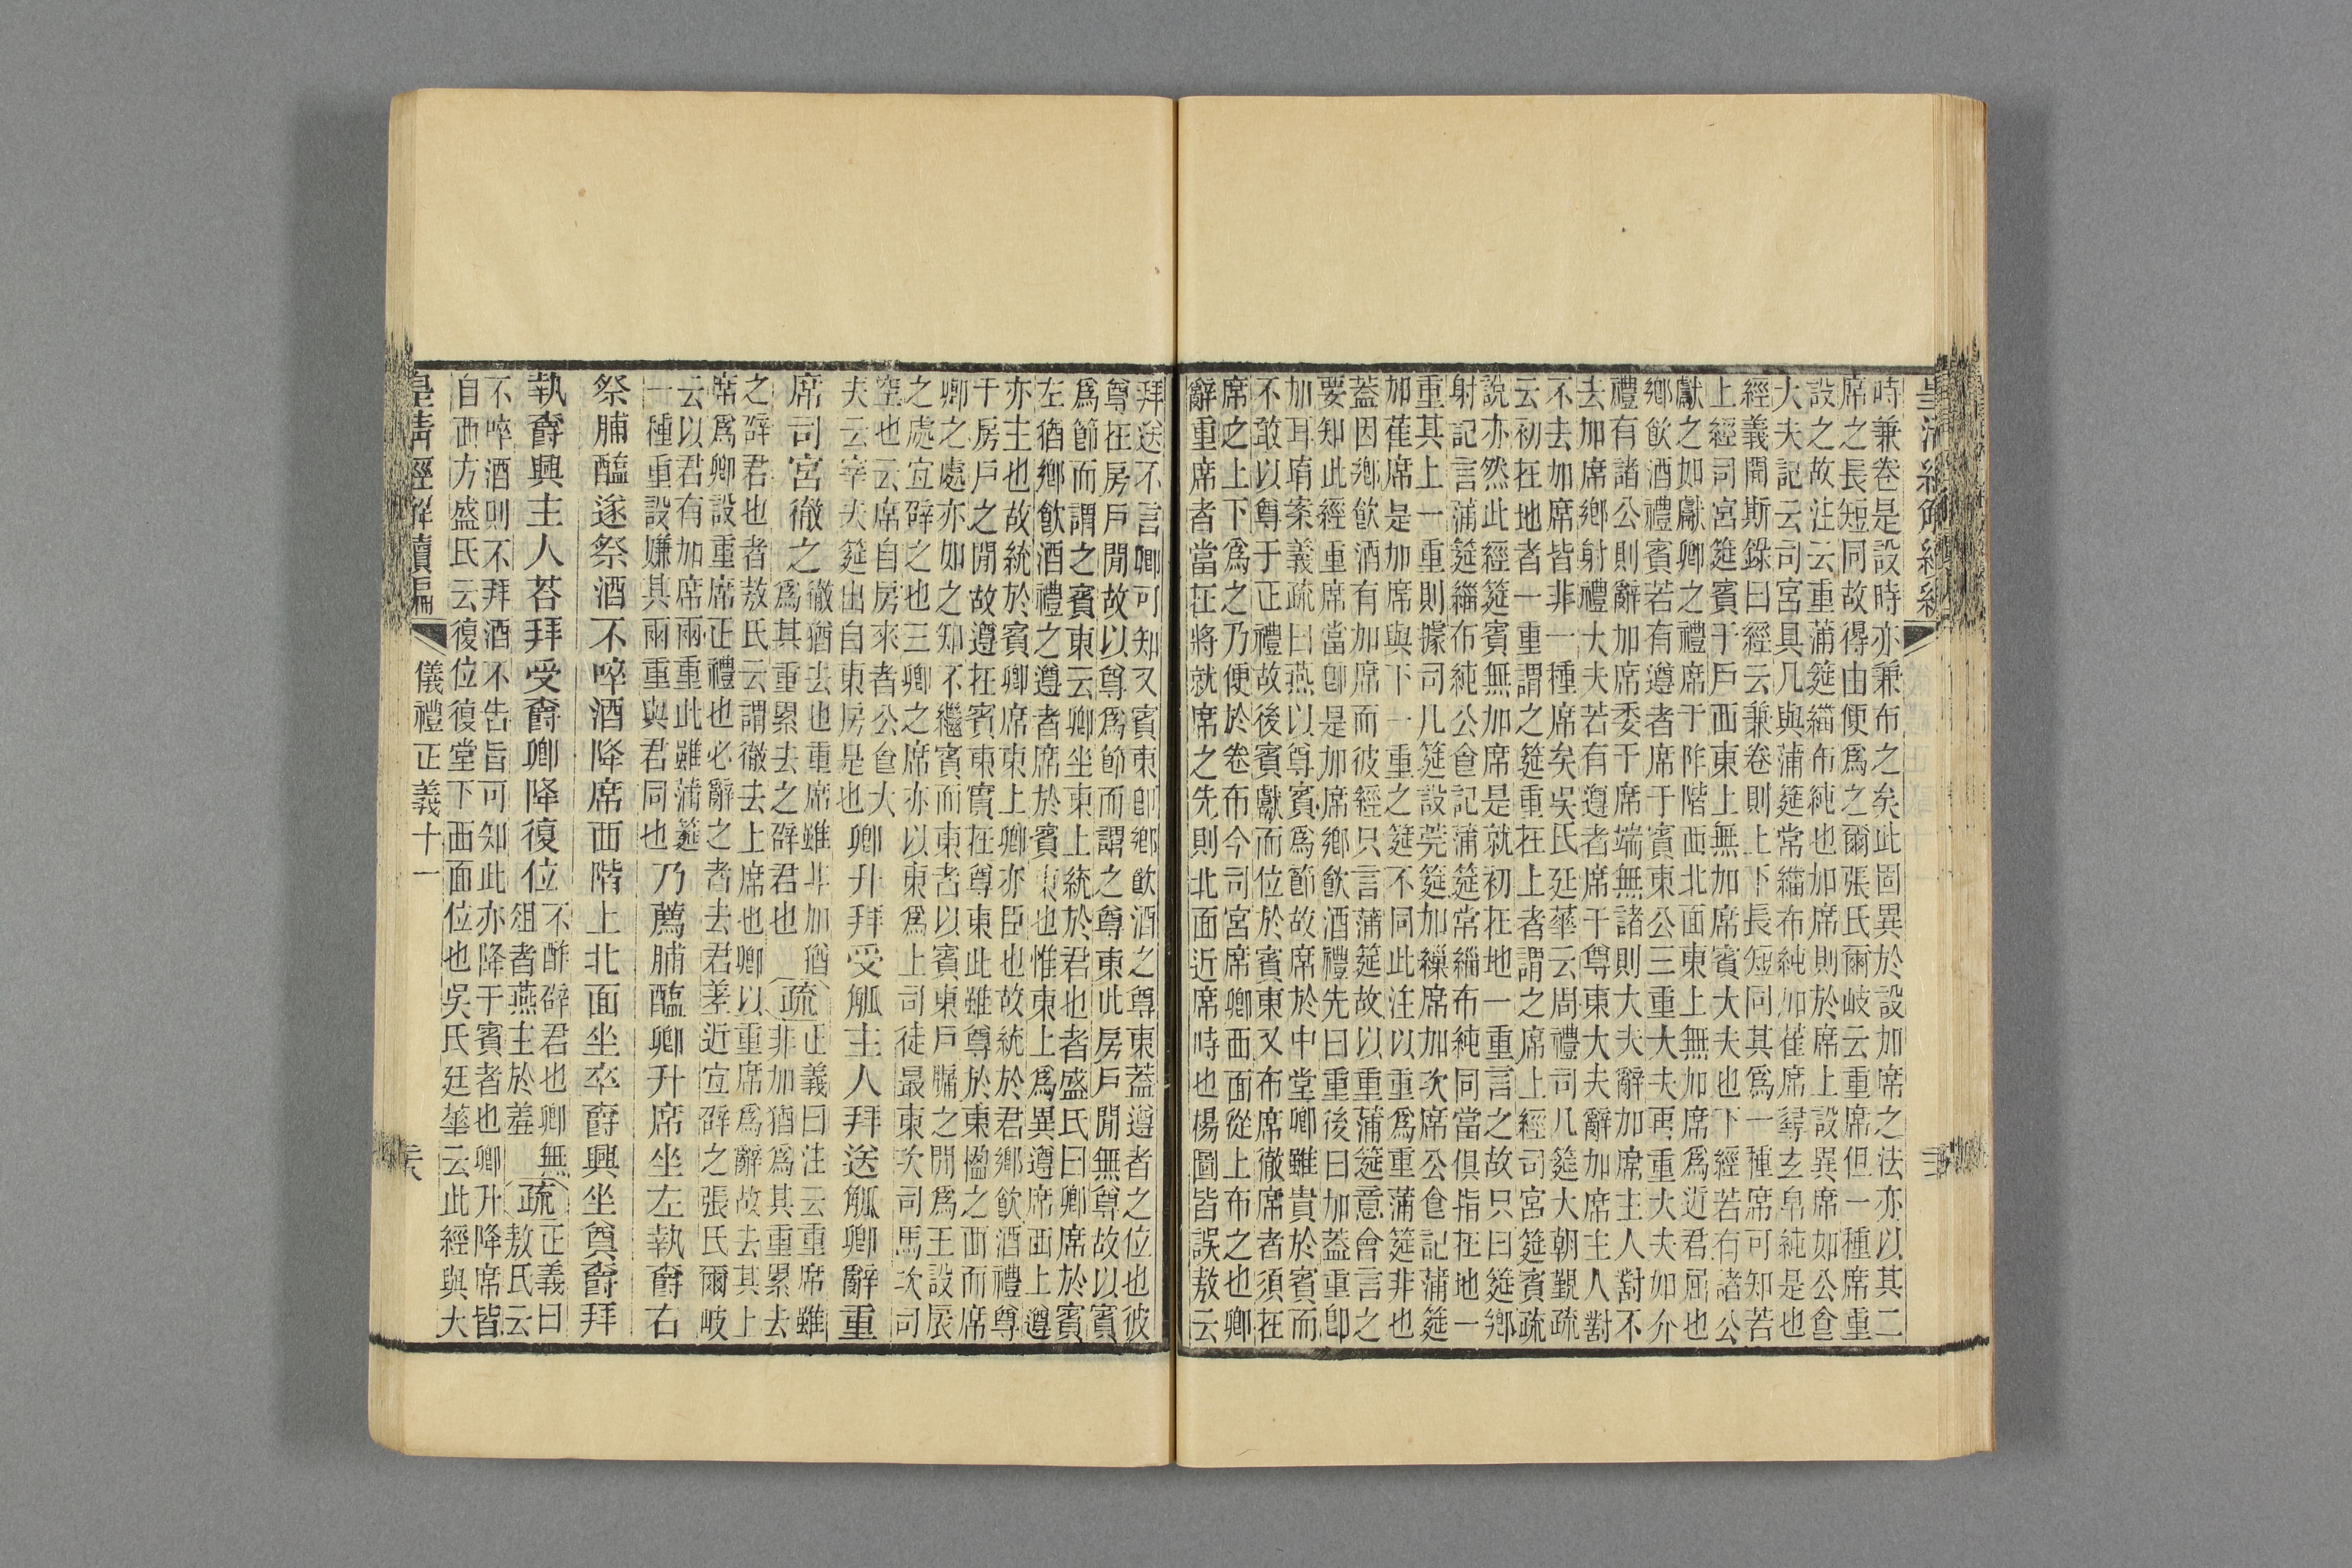 時兼卷是設時亦兼布之矣此固異於設加席之法亦以其二
席之長短同故得由便爲之爾張氏爾岐云重席但一種席重
設之故注云重蒲筵緇布純也加席則於席上設異席如公食
大夫記云司宮具几與蒲筵常緇布純加萑席尋玄帛純是也
經義聞斯錄曰經云兼卷則上下長短同其爲一種席可知若
上經司宮筵賓于戶西東上無加席賓大夫也下經若有諸公
獻之如獻卿之禮席于阼階西北面東上無加席爲近君屈也
鄉飲酒禮賓若有遵者席于賓東公三重大夫再重大夫如介
禮有諸公則辭加席委于席端無諸則大夫辭加席主人對不
去加席鄉射禮大夫若有遵者席于尊東大夫辭加席主人對
不去加席皆非一種席矣吳氏廷華云周禮司几筵大朝覲疏
云初在地者一重謂之筵重在上者謂之席上經司宮筵賓疏
說亦然此經筵賓無加席是就初在地一重言之故只曰筵鄉
射記言蒲筵緇布純公食記蒲筵常緇布純同當俱指在地一
重其上一重則據司几筵設莞筵加繅席加次席公食記蒲筵
加萑席是加席與下一重之筵不同此注以重爲重蒲筵非也
蓋因鄉飲酒有加席而彼經只言蒲筵故以重蒲筵意會言之
要知此經重席當卽是加席鄉飲酒禮先曰重後曰加蓋重卽
加耳堉案義疏曰燕以尊賓爲節故席於中堂卿雖貴於賓而
不敢以尊于正禮故後賓獻而位於賓東又布席徹席者須在
席之上下爲之乃便於卷布今司宮席卿西面從上布之也卿
辭重席者當在將就席之先則北面近席時也楊圖皆誤敖云
拜送不言卿可知又賓東卽鄉飲酒之尊東蓋遵者之位也彼
尊在房戶閒故以尊爲節而謂之尊東此房戶閒無尊故以賓
爲節而謂之賓東云卿坐東上統於君也者盛氏曰卿席於賓
左猶鄉飲酒禮之遵者席於賓東也惟東上爲異遵席西上遵
亦主也故統於賓卿席東上卿亦臣也故統於君鄉飲酒禮尊
于房戶之閒故遵在賓東實在尊東此雖尊於東楹之西而席
卿之處亦如之知不繼賓而東者以賓東戶牖之閒爲王設扆
之處宜辟之也三卿之席亦以東爲上司徒最東次司馬次司
空也云席自房來者公食大
夫云宰夫筵出自東房是也卿升拜受觚主人拜送觚卿辭重
席司宮徹之徹猶去也重席雖非加猶
爲其重累去之辟君也疏正義曰注云重席雖
非加猶爲其重累去
之辟君也者敖氏云謂徹去上席也卿以重席爲辭故去其上
席爲卿設重席正禮也必辭之者去君差近宜辟之張氏爾岐
云以君有加席兩重此雖蒲筵
一種重設嫌其兩重與君同也乃薦脯醢卿升席坐左執爵右
祭脯醢遂祭酒不啐酒降席西階上北面坐卒爵興坐奠爵拜
執爵興主人荅拜受爵卿降復位不酢辟君也卿無
俎者燕主於羞疏正義曰
敖氏云
不啐酒則不拜酒不告旨可知此亦降于賓者也卿升降席皆
自西方盛氏云復位復堂下西面位也吳氏廷華云此經與大
皇淸經解續編
儀禮正義十一